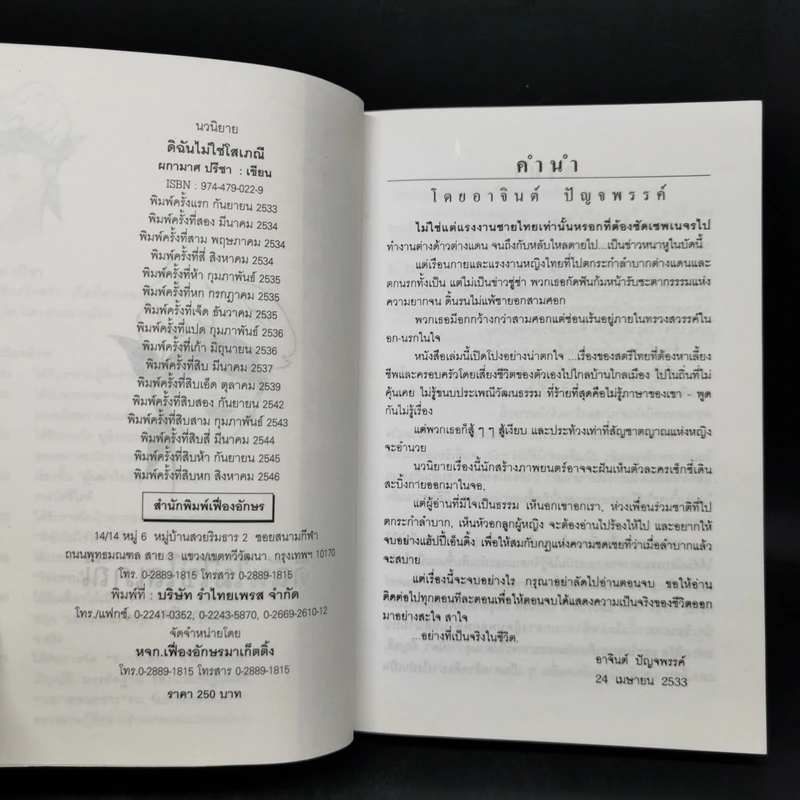 นวนิยาย
ดิฉันไม่ใช่โสเภณี
ผกามาศ ปรีชา : เขียน
ISBN : 974-479-022-9
พิมพ์ครั้งแรก กันยายน 2533
พิมพ์ครั้งที่สอง มีนาคม 2534
พิมพ์ครั้งที่สาม พฤษภาคม 2534
พิมพ์ครั้งที่สี่ สิงหาคม 2534
พิมพ์ครั้งที่ห้า กุมภาพันธ์ 2535
พิมพ์ครั้งที่หก กรกฎาคม 2535
พิมพ์ครั้งที่เจ็ด ธันวาคม 2535
พิมพ์ครั้งที่แปด กุมภาพันธ์ 2536
พิมพ์ครั้งที่เก้า มิถุนายน 2536
พิมพ์ครั้งที่สิบ มีนาคม 2537
พิมพ์ครั้งที่สิบเอ็ด ตุลาคม 2539
พิมพ์ครั้งที่สิบสอง กันยายน 2542
พิมพ์ครั้งที่สิบสาม กุมภาพันธ์ 2543
พิมพ์ครั้งที่สิบสี่ มีนาคม 2544
พิมพ์ครั้งที่สิบห้า กันยายน 2545
พิมพ์ครั้งที่สิบหก สิงหาคม 2546
สำนักพิมพ์เฟื่องอักษร
14/14 หมู่ 6 หมู่บ้านสวยริมธาร 2 ซอยสนามกีฬา
ถนนพุทธมณฑล สาย 3 แขวง/เขตทวีวัฒนา กรุงเทพฯ 10170
โทร. 0-2889-1815 โทรสาร 0-2889-1815
พิมพ์ที่ : บริษัท รำไทยเพรส จำกัด
โทร./แฟกซ์. 0-2241-0352, 0-2243-5870, 0-2669-2610-12
จัดจำหน่ายโดย
หจก.เฟื่องอักษรมาเก็ตติ้ง
โทร.0-2889-1815 โทรสาร 0-2889-1815
ราคา 250 บาท
คำนำ
โดยอาจินต์ ปัญจพรรค์
ไม่ใช่แต่แรงงานชายไทยเท่านั้นหรอกที่ต้องซัดเซพเนจรไป
ทำงานต่างด้าวต่างแดน จนถึงกับหลับไหลตายไป...เป็นข่าวหนาหูในบัดนี้
แต่เรือนกายและแรงงานหญิงไทยที่ไปตกระกำลำบากต่างแดนและ
ตกนรกทั้งเป็น แต่ไม่เป็นข่าวซู่ซ่า พวกเธอกัดฟันก้มหน้ารับชะตากรรมแห่ง
ความยากจน ดิ้นรนไม่แพ้ชายอกสามศอก
พวกเธอมีอกกว้างกว่าสามศอกแต่ซ่อนเร้นอยู่ภายในทรวงสวรรค์ใน
อก-นรกในใจ
หนังสือเล่มนี้เปิดโปงอย่างน่าตกใจ ...เรื่องของสตรีไทยที่ต้องหาเลี้ยง
ชีพและครอบครัวโดยเสี่ยงชีวิตของตัวเองไปไกลบ้านไกลเมือง ไปในถิ่นที่ไม่
คุ้นเคย ไม่รู้ขนบประเพณีวัฒนธรรม ที่ร้ายที่สุดคือไม่รู้ภาษาของเขา - พูด
กันไม่รู้เรื่อง
แต่พวกเธอก็สู้ ๆ ๆ สู้เงียบ และประท้วงเท่าที่สัญชาตญาณแห่งหญิง
จะอำนวย
นวนิยายเรื่องนี้นักสร้างภาพยนตร์อาจจะฝันเห็นตัวละครเซ็กซี่เดิน
สะบิ้งกายออกมาในจอ,
แต่ผู้อ่านที่มีใจเป็นธรรม เห็นอกเขาอกเรา, ห่วงเพื่อนร่วมชาติที่ไป
ตกระกำลำบาก, เห็นหัวอกลูกผู้หญิง จะต้องอ่านไปร้องไห้ไป และอยากให้
จบอย่างแฮ้ปปี้เอ็นดิ้ง เพื่อให้สมกับกฎแห่งความชดเชยที่ว่าเมื่อลำบากแล้ว
จะสบาย
แต่เรื่องนี้จะจบอย่างไร กรุณาอย่าลัดไปอ่านตอนจบ ขอให้อ่าน
ติดต่อไปทุกตอนทีละตอนเพื่อให้ตอนจบได้แสดงความเป็นจริงของชีวิตออก
มาอย่างสะใจ สาใจ
...อย่างที่เป็นจริงในชีวิต.
อาจินต์ ปัญจพรรค์
24 เมษายน 2533